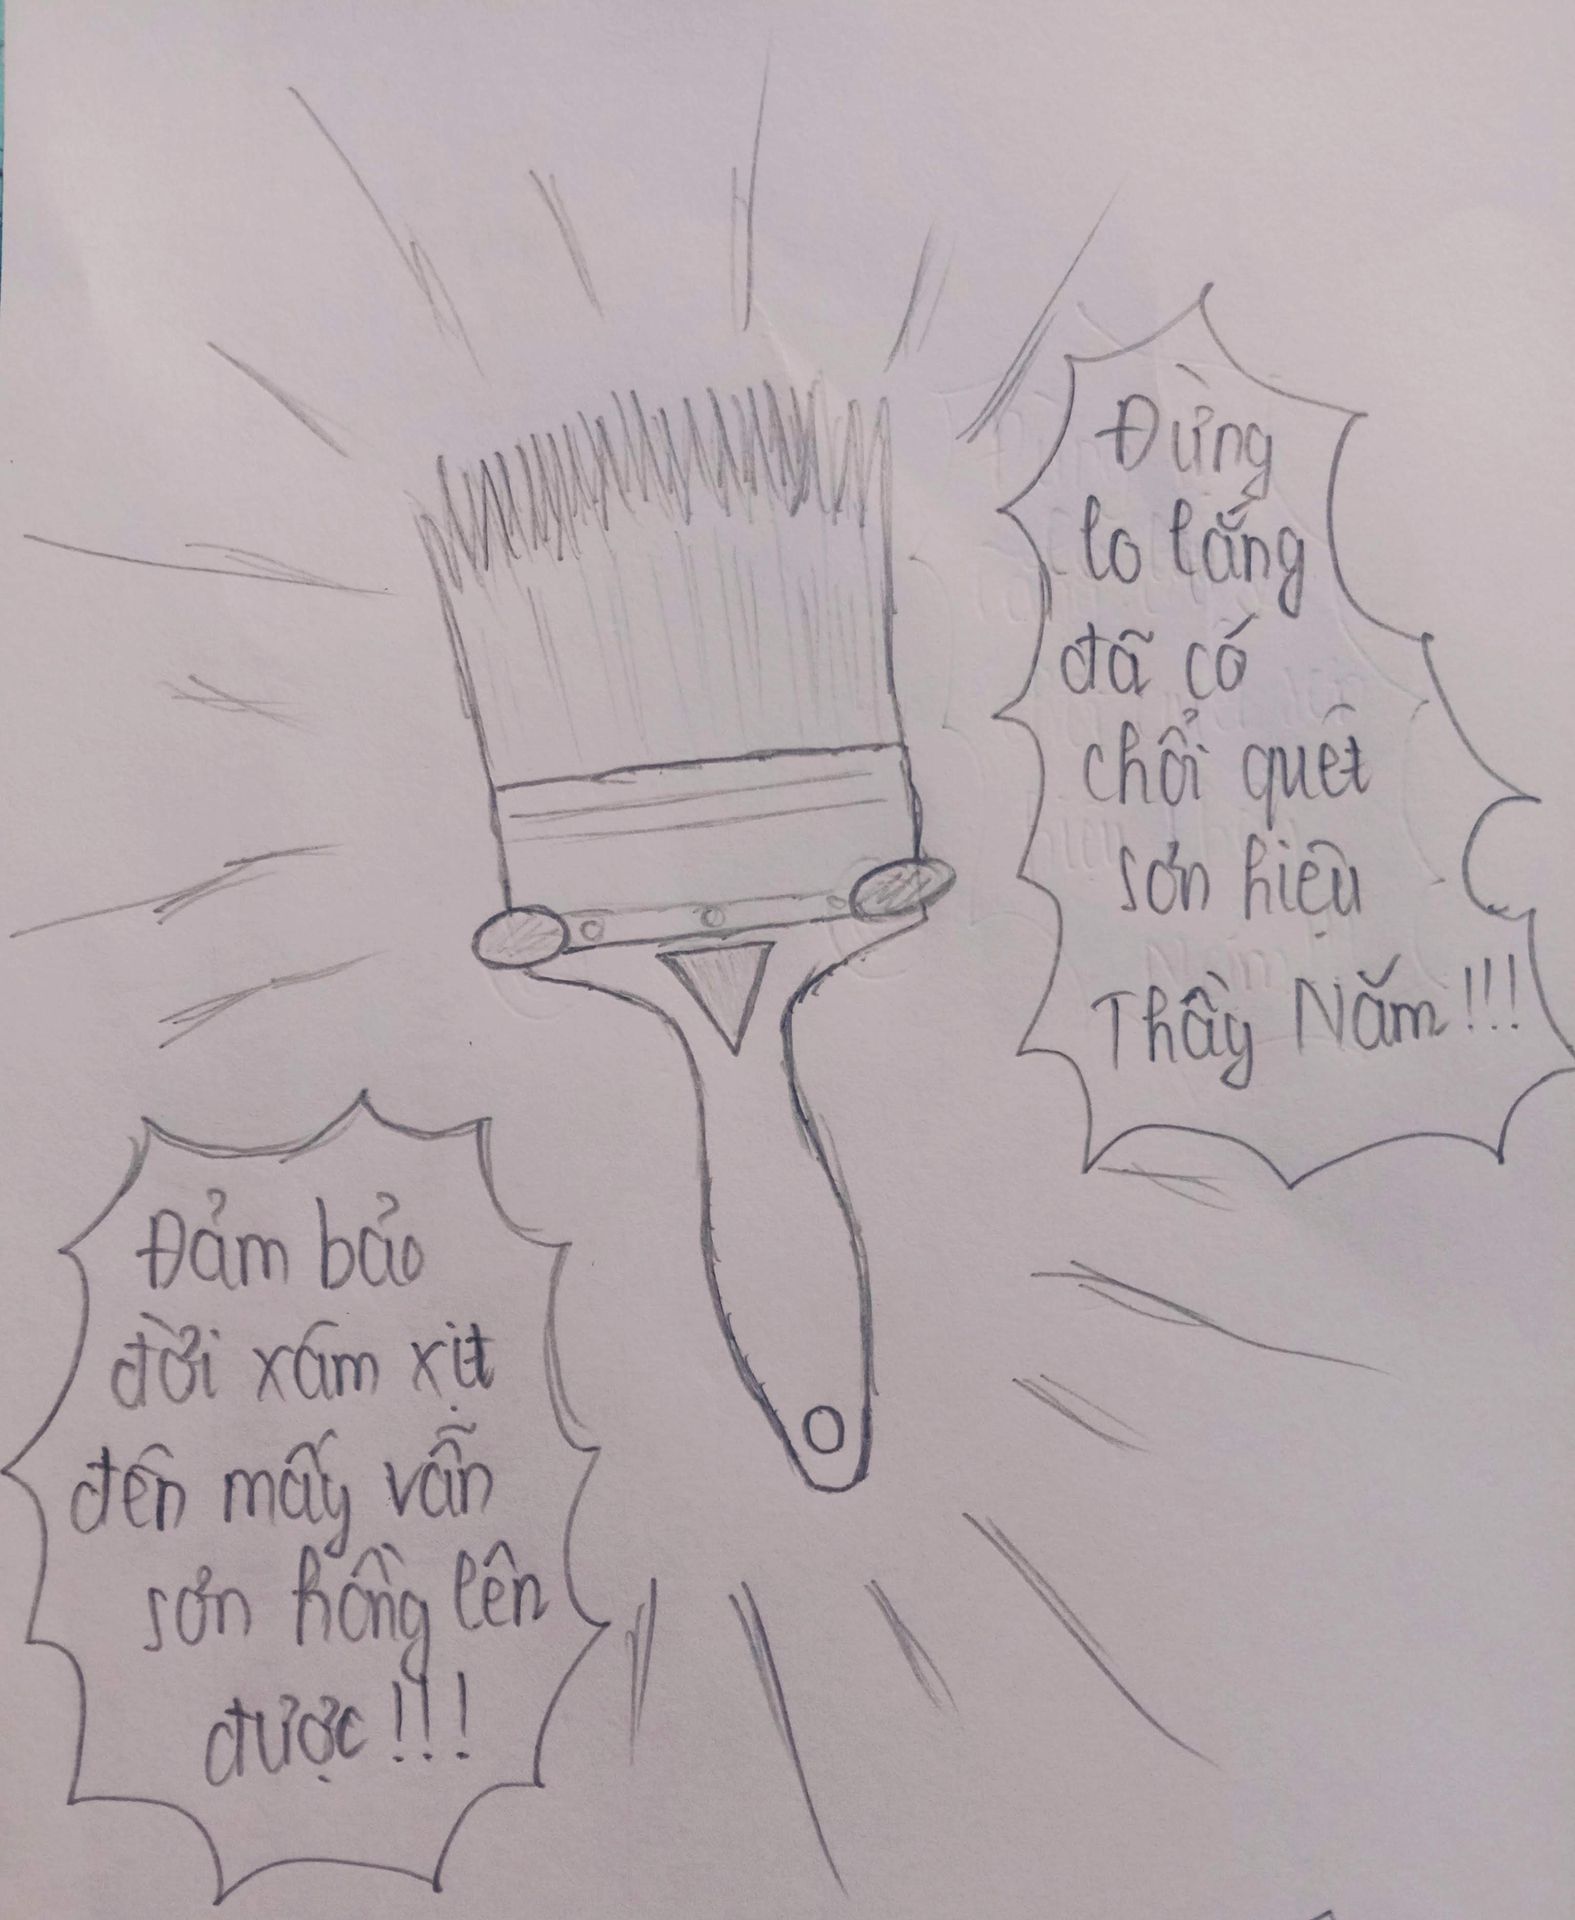 Đừng
lo lắng
đã có
chổi quét
sơn hiệu
Thầy Năm!!!
Đảm bảo
đời xám xịt
đến mấy vẫn
sơn hồng lên
được!!!